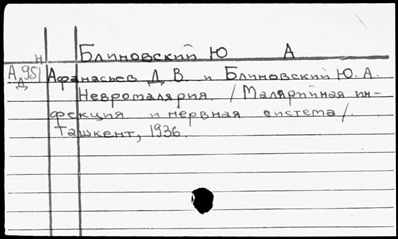 Блиновский Ю А
А 951 Афанасьев Д. В. и Блиновский Ю. А.
Д
Невромалярия. /Малярийная ин-
фекция и нервная система/
Ташкент, 1936.